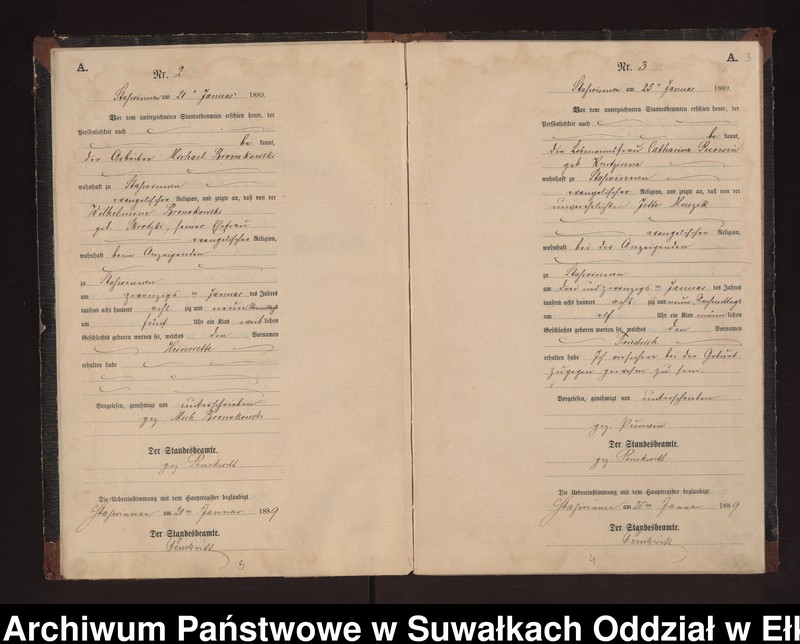 A.
Nr. 2
Staßwinnen am 21ten Januar 1889.
Vor dem unterzeichneten Standesbeamten erschien heute, der
Persönlichkeit nach
be kannt,
der Arbeiter Michael Bromkowski
wohnhaft zu Staßwinnen
evangelischer Religion, und zeigte an, daß von der
Wilhelmine Bronakowski
geb. Skrotzki, seiner Ehefrau
evangelischer Religion,
wohnhaft beim Anzeigenden
zu Staßwinnen
am zwanzigsten Januar des Jahres
tausend acht hundert acht zig und neun Vormittags
um fünf Uhr ein Kind weib lichen
Geschlechts geboren worden sei, welches den Vornamen
Heinriette
erhalten habe
Vorgelesen, genehmigt und unterschrieben
gez Mich Bronakowski
Der Standesbeamte.
gez
Die Uebereinstimmung mit dem Hauptregister beglaubigt.
Staßwinnen am 21ten Januar 1889
Der Standesbeamte.
3
A. 3
Nr. 3
Staßwinnen am 25ten Januar 1889.
Vor dem unterzeichneten Standesbeamten erschien heute, der
Persönlichkeit nach
be kannt,
die Losmannsfrau Catharina
geb
wohnhaft zu Staßwinnen
evangelischer Religion, und zeigte an, daß von der
unverehelichten Jette
evangelischer Religion,
wohnhaft bei der Anzeigenden
zu Staßwinnen
am drei und zwanzigsten Januar des Jahres
tausend acht hundert acht zig und neun Nachmittags
um elf Uhr ein Kind männ lichen
Geschlechts geboren worden sei, welches den Vornamen
Friedrich
erhalten habe Ich versichere bei der Geburt
zugegen gewesen zu sein.
Vorgelesen, genehmigt und unterschrieben
gez.
Der Standesbeamte.
gez
Die Uebereinstimmung mit dem Hauptregister beglaubigt.
Staßwinnen am 25ten Januar 1889
Der Standesbeamte.
4
Archiwum Państwowe w Suwałkach Oddział w Eł